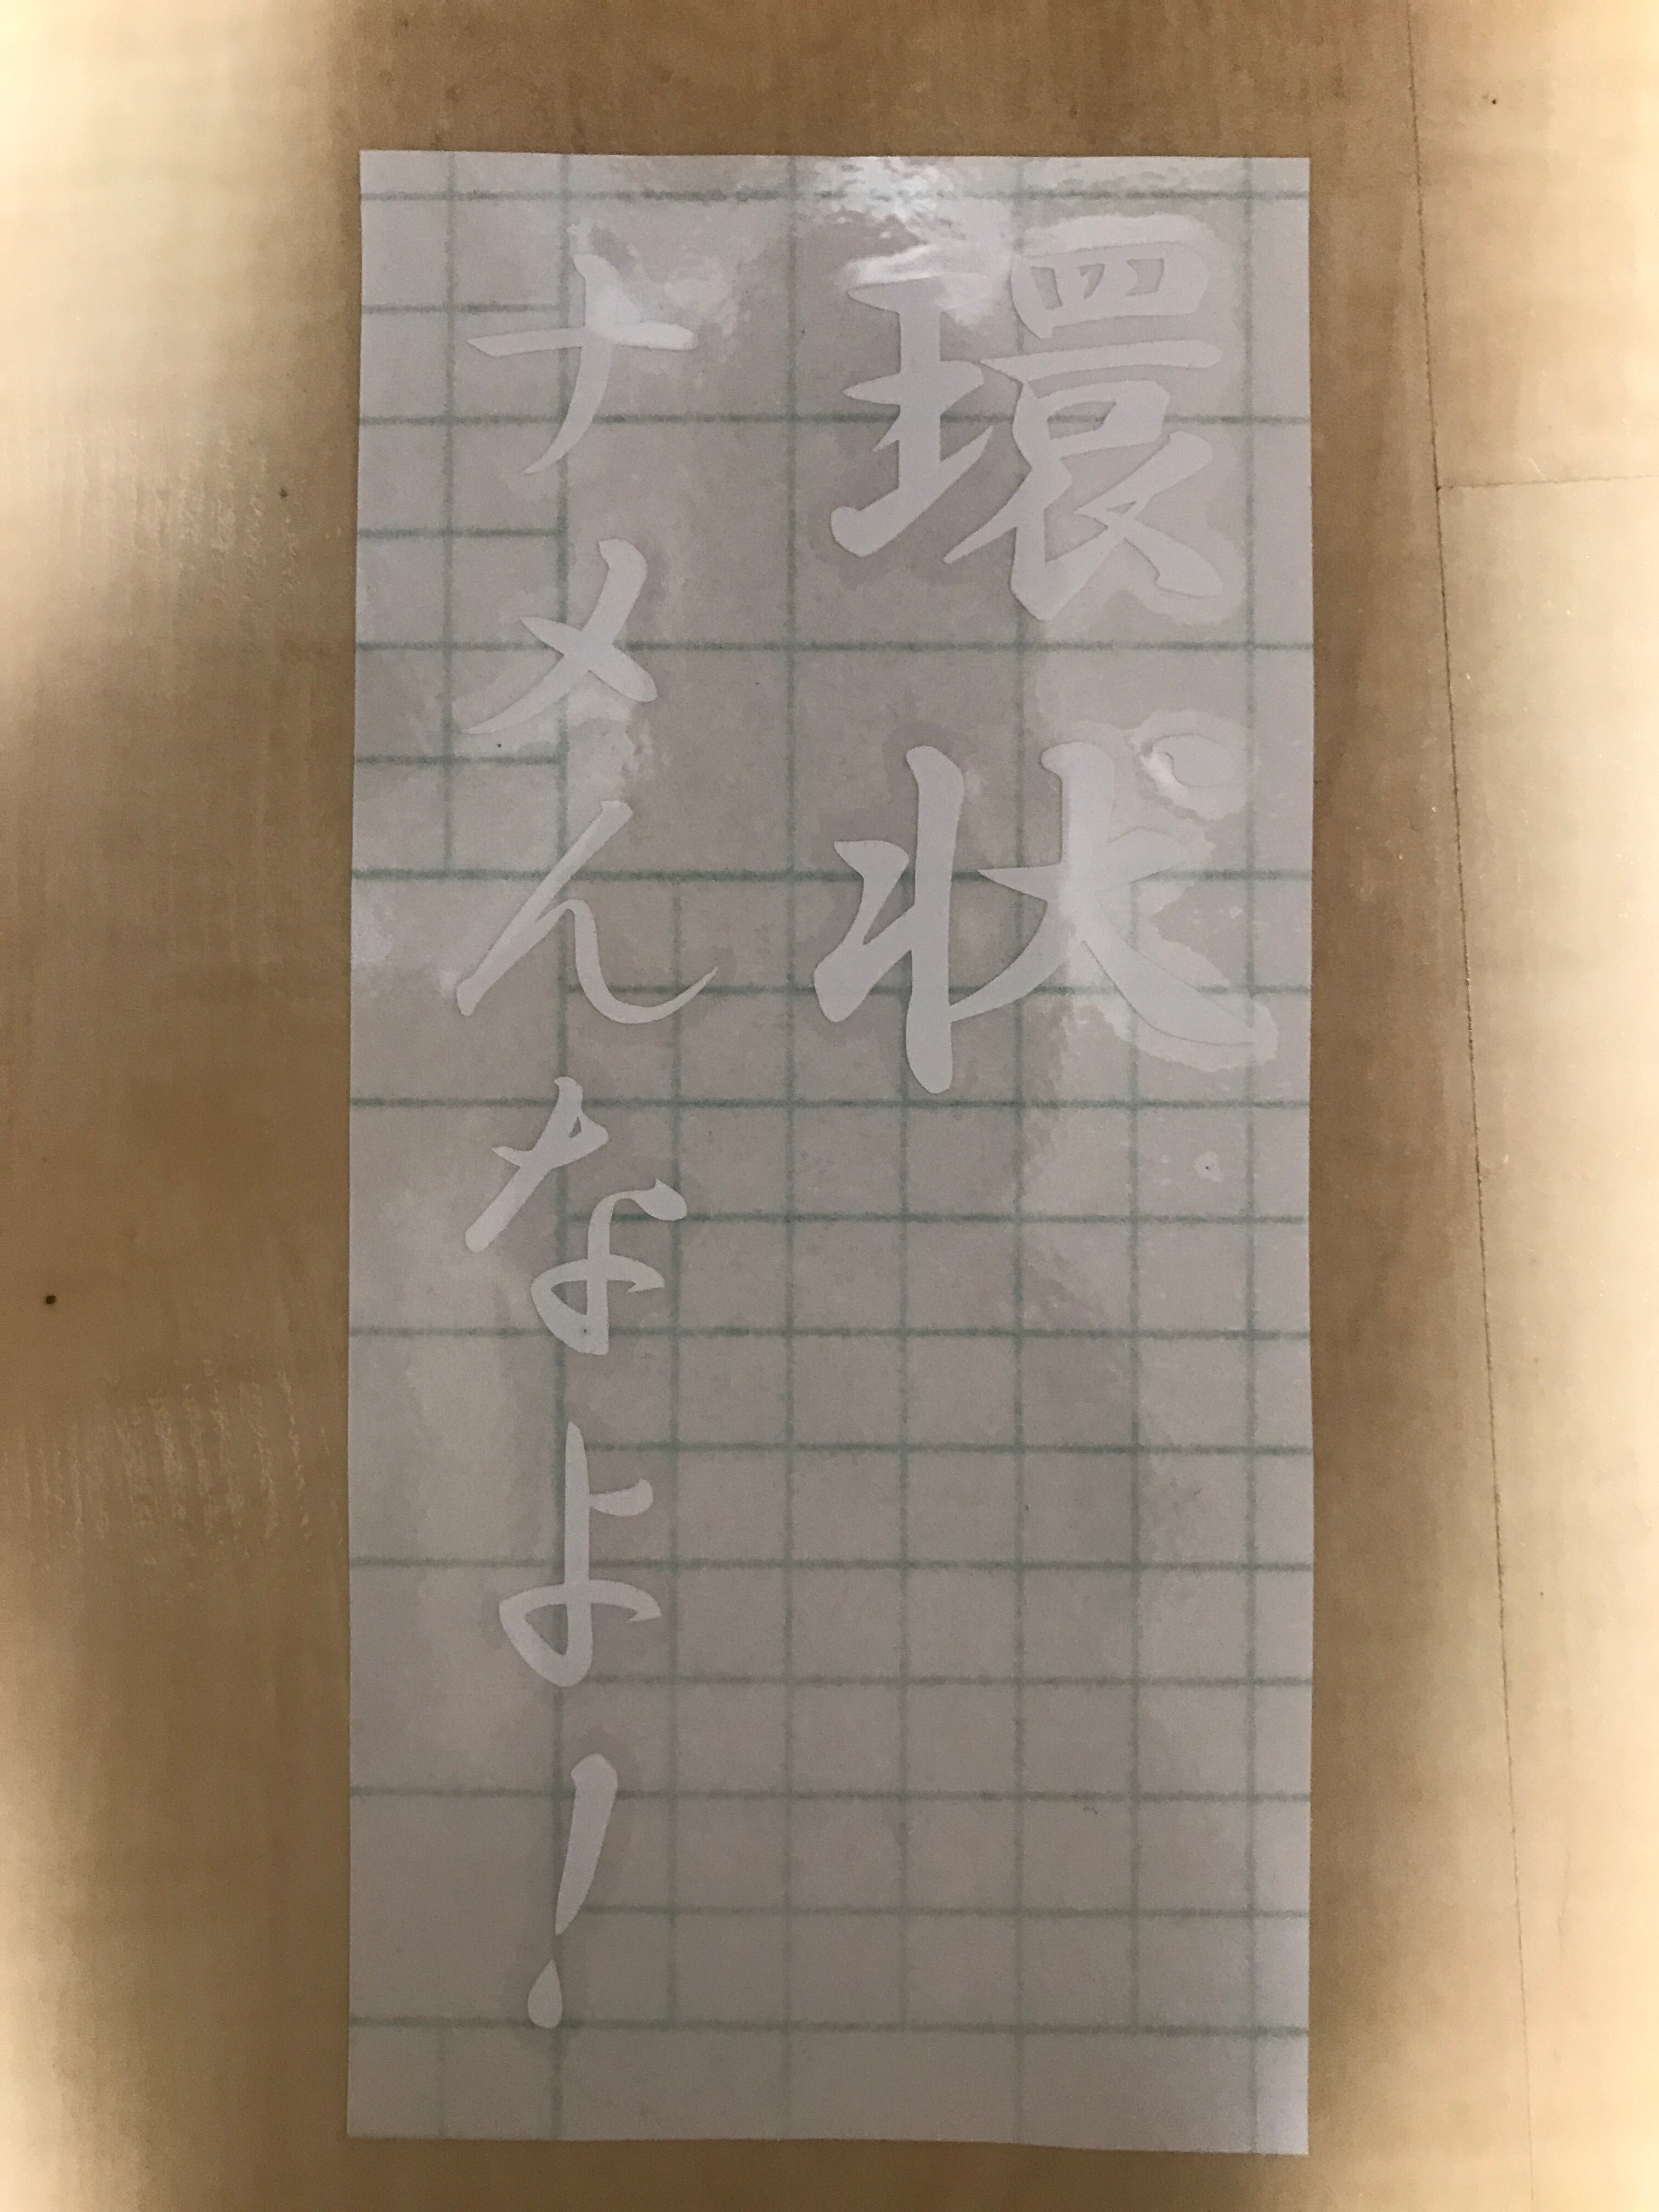 環状
ナメんなよ!